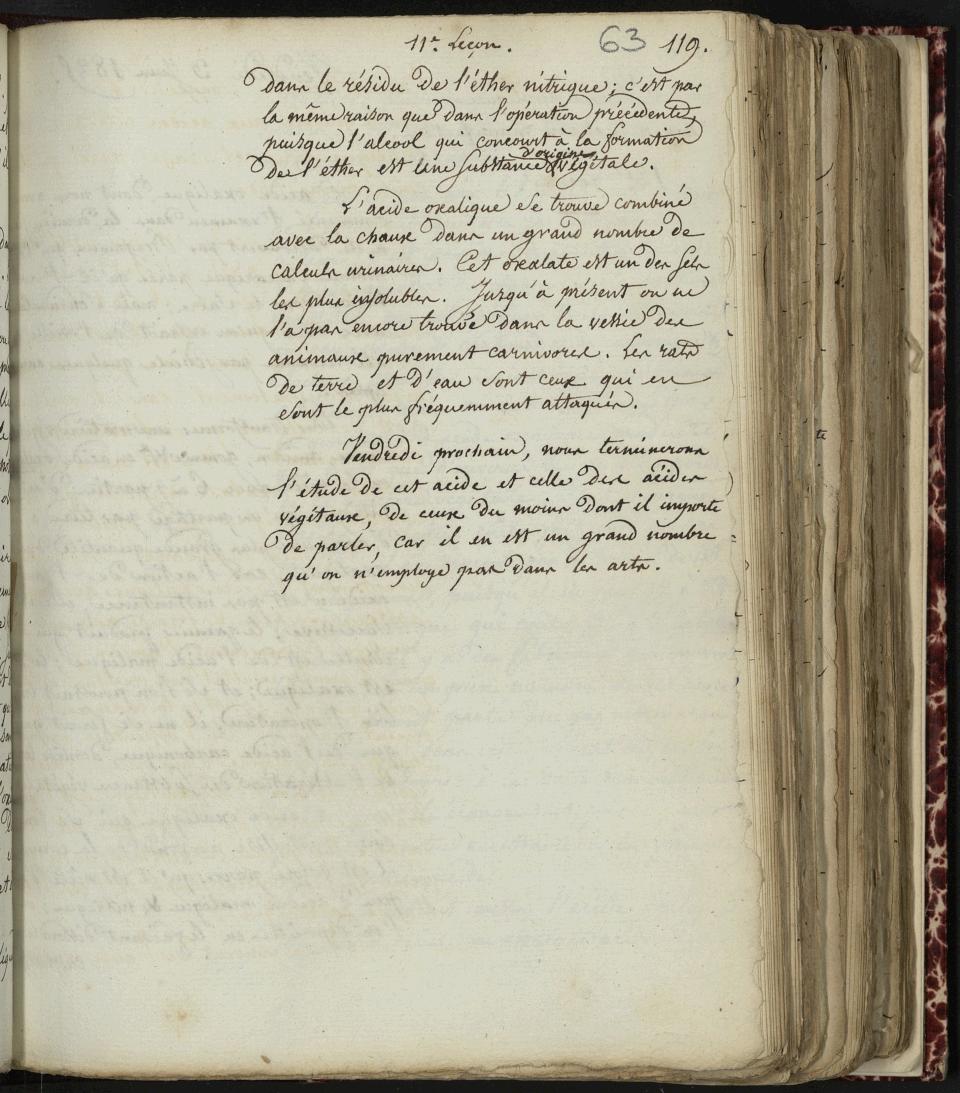 11e. Leçon. 63 119.
dans le résidu de l'éther nitrique ; c'est par
la même raison que dans l'opération précédente,
puisque l'alcool qui concourt à la formation
d'origine
de l'éther est une substance végétale.
L'acide oxalique se trouve combiné
avec la chaux dans un grand nombre de
calculs urinaires. Cet oxalate est un des sels
les plus insolubles. Jusqu'à présent on ne
l'a pas encore trouvé dans la vessie des
animaux purement carnivores. Les rats
de terre et d'eau sont ceux qui en
sont le plus fréquemment attaqués.
Vendredi prochain, nous terminerons
l'étude de cet acide et celle des acides
végétaux, de ceux du moins dont il importe
de parler, car il en est un grand nombre
qu'on n'employe pas dans les arts.